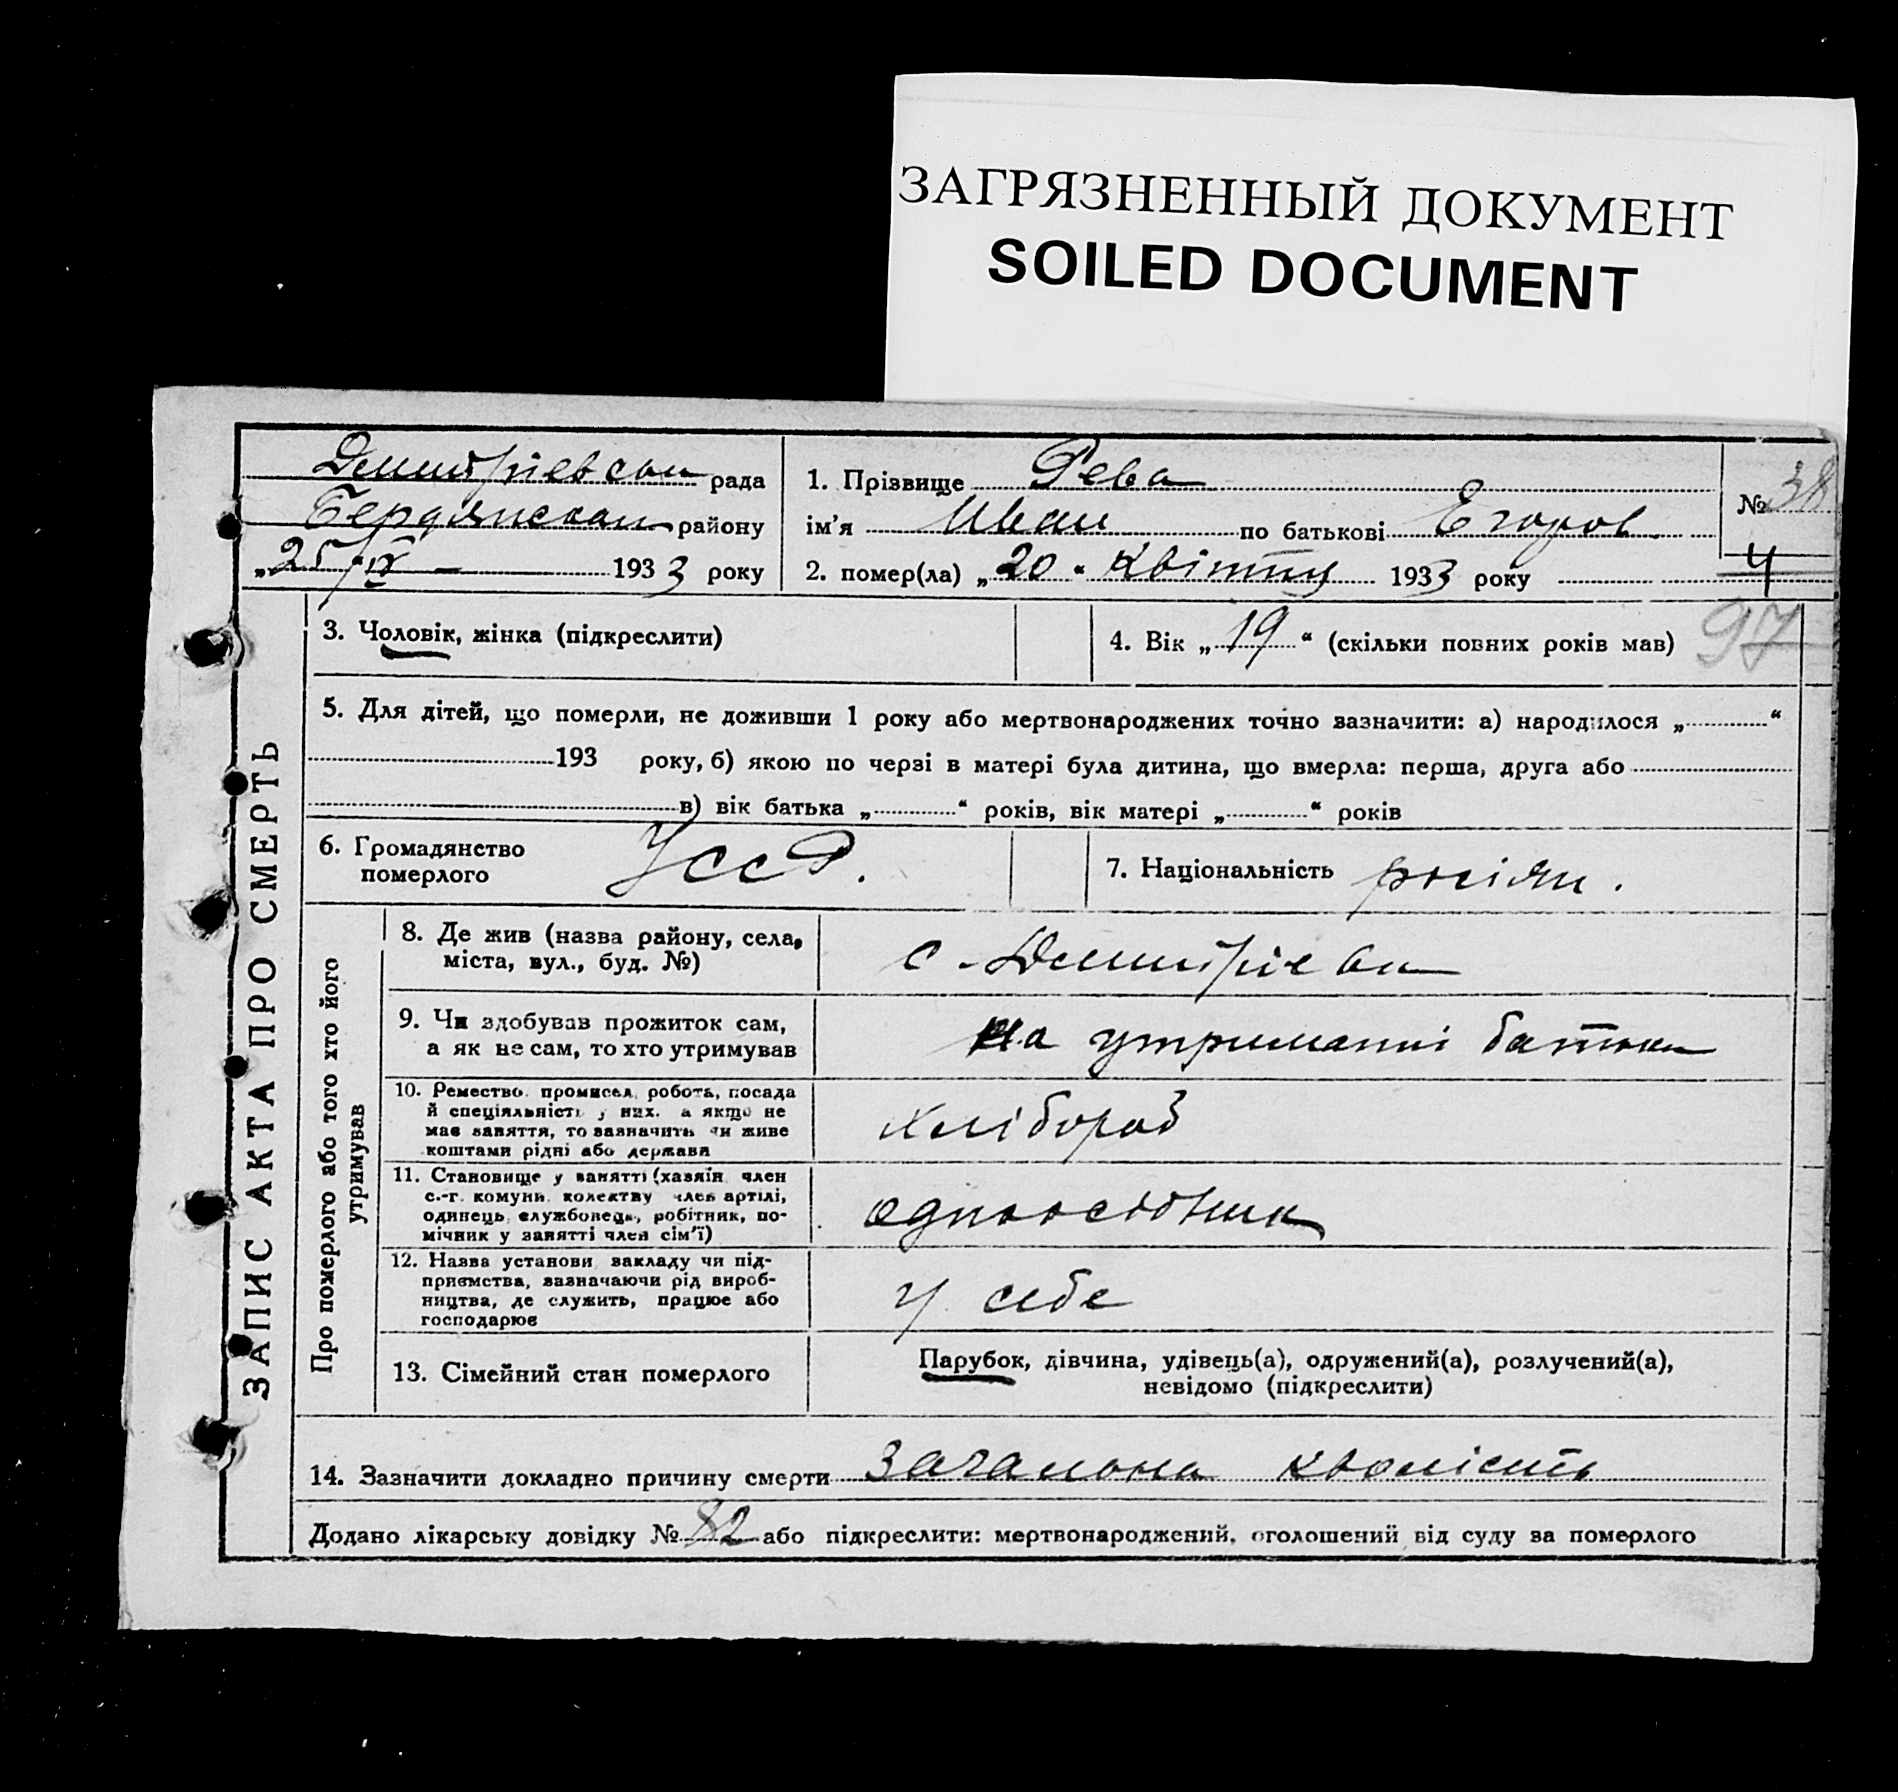 ЗАГРЯЗНЕННЫЙ ДОКУМЕНТ
SOILED DOCUMENT
Дмитрієвська рада
Бердянскаи району
„25/IV 1933 року
1. Прізвище Рева
ім'я Иван по батькові Егоров
2. помер(ла) „20“ Квітня 1933 року
№ 38
4
97
ЗАПИС АКТА ПРО СМЕРТЬ
3. Чоловік, жінка (підкреслити)
4. Вік „19“ (скільки повних років мав)
5. Для дітей, що померли, не доживши 1 року або мертвонароджених точно зазначити: а) народилося „ “
193 року, б) якою по черзі в матері була дитина, що вмерла: перша, друга або
в) вік батька „ “ років, вік матері „ “ років
6. Громадянство
померлого
УССР.
7. Національність росіян.
Про померлого або того хто його
утримував
8. Де жив (назва району, села,
міста, вул., буд. №)
с. Дмитрієвка
9. Чи здобував прожиток сам,
а як не сам, то хто утримував
на утриманні батька
10. Ремество, промисел, робота, посада
й спеціяльність у них, а якщо не
має заняття, то зазначить чи живе
коштами рідні або держави
хлібороб
11. Становище у занятті (хазяїн, член
с.-г. комуни, колективу, член артілі,
одинець, службовець, робітник, по-
мічник у занятті член сім'ї)
одноосібник
12. Назва установи, закладу чи під-
приємства, зазначаючи рід вироб-
ництва, де служить, працює або
господарює
у себе
13. Сімейний стан померлого
Парубок, дівчина, удівець(а), одружений(а), розлучений(а),
невідомо (підкреслити)
14. Зазначити докладно причину смерти загальна кволість
Додано лікарську довідку № 82 або підкреслити: мертвонароджений, оголошений від суду за померлого